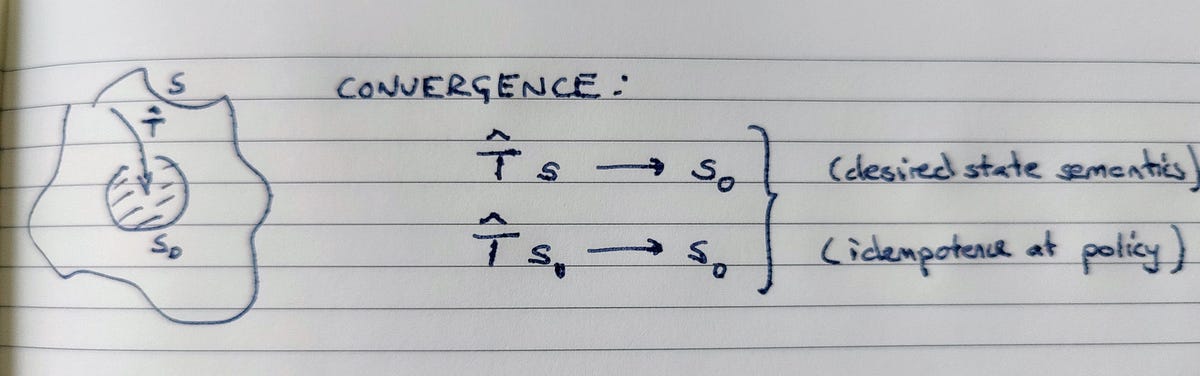 S
CONVERGENCE:
T̂
T̂ S → S₀ (desired state sementics)
S₀
T̂ S₀ → S₀ (idempotence at policy)